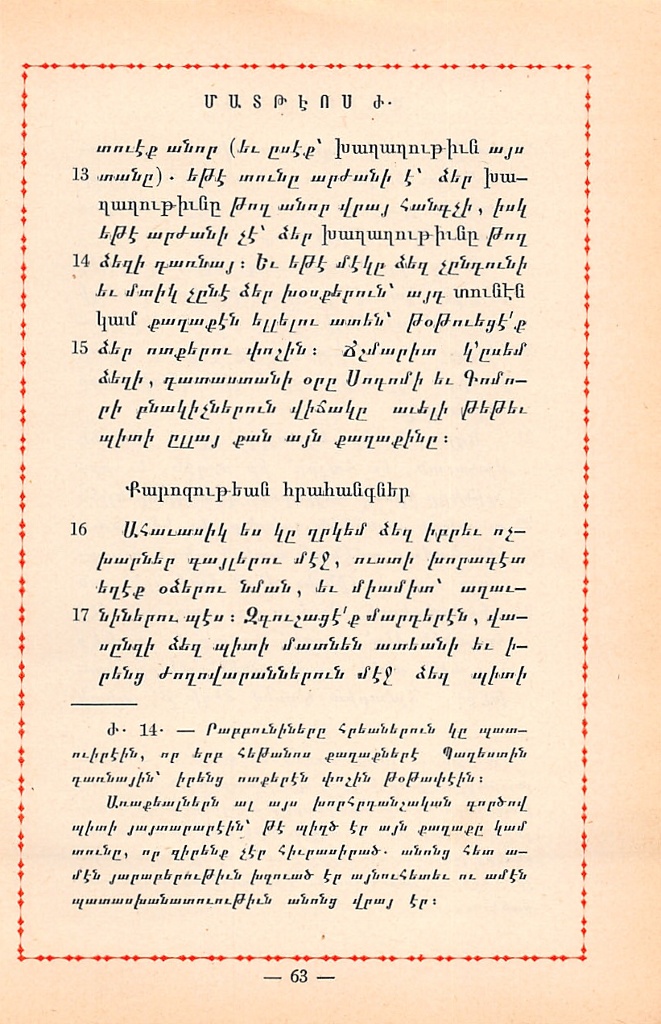 ՄԱՏԹԷՈՍ Ժ.
տուէք անոր (եւ ըսէք՝ խաղաղութիւն այս
13 տանը). եթէ տունը արժանի է՝ ձեր խա–
ղաղութիւնը թող անոր վրայ հանգչի, իսկ
եթէ արժանի չէ՝ ձեր խաղաղութիւնը թող
14 ձեզի դառնայ։ Եւ եթէ մէկը ձեզ չընդունի
եւ մտիկ չընէ ձեր խօսքերուն՝ այդ տունէն
կամ քաղաքէն ելլելու ատեն՝ թօթուեցէ՛ք
15 ձեր ոտքերու փոշին։ Ճշմարիտ կ՚ըսեմ
ձեզի, դատաստանի օրը Սոդոմի եւ Գոմո–
րի բնակիչներուն վիճակը աւելի թեթեւ
պիտի ըլլայ քան այն քաղաքինը։
Քարոզութեան հրահանգներ
16 Ահաւասիկ ես կը ղրկեմ ձեզ իբրեւ ոչ–
խարներ գայլերու մէջ, ուստի խորագէտ
եղէք օձերու նման, եւ միամիտ՝ աղաւ–
17 նիներու պէս։ Զգուշացէ՛ք մարդերէն, վա–
սընզի ձեզ պիտի մատնեն ատեանի եւ ի–
րենց ժողովարաններուն մէջ ձեզ պիտի
Ժ. 14. — Րաբբունիները Հրեաներուն կը պատ–
ուիրէին, որ երբ հեթանոս քաղաքներէ Պաղեստին
դառնային՝ իրենց ոտքերէն փոշին թօթափէին։
Առաքեալներն ալ այս խորհրդանշական գործով
պիտի յայտարարէին՝ թէ պիղծ էր այն քաղաքը կամ
տունը, որ զիրենք չէր հիւրասիրած. անոնց հետ ա–
մէն յարաբերութիւն խզուած էր այնուհետեւ ու ամէն
պատասխանատուութիւն անոնց վրայ էր։
— 63 —